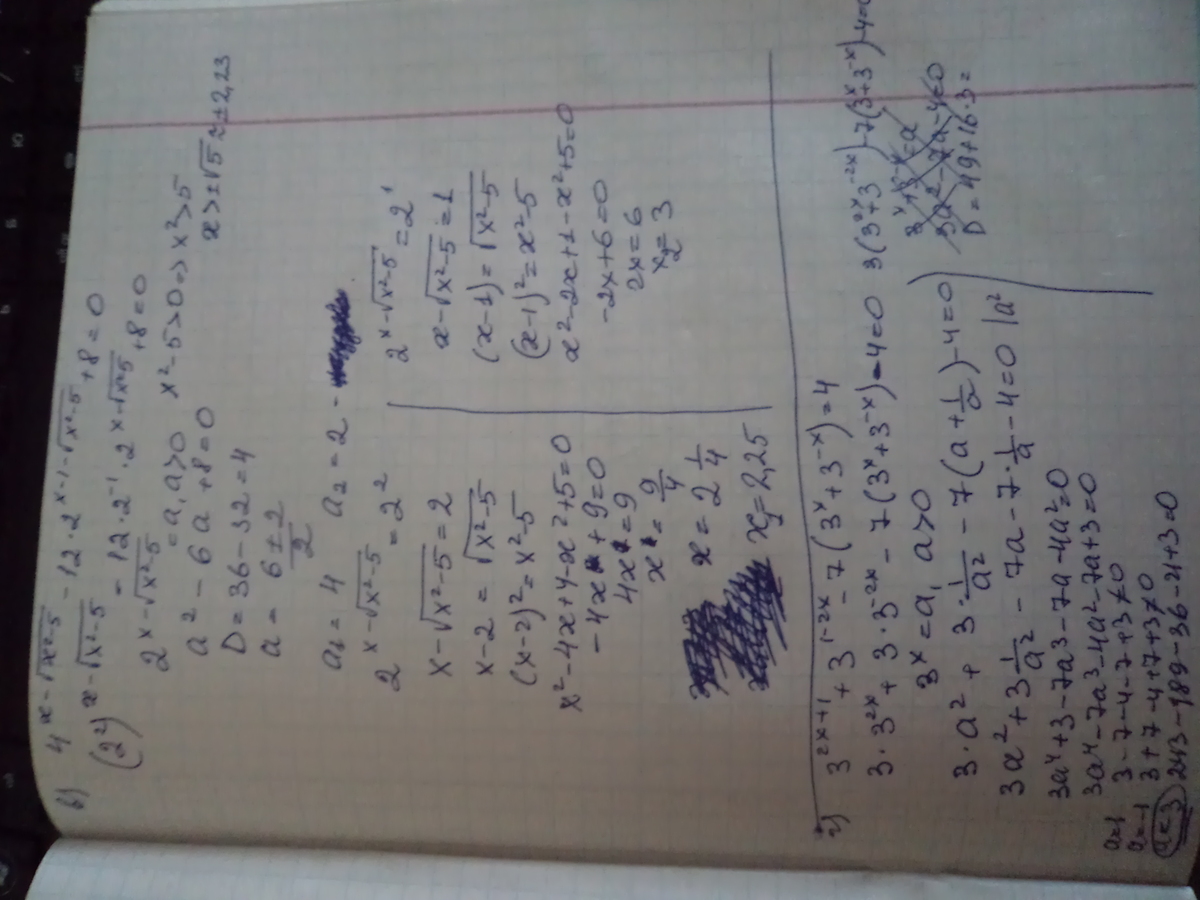 в) 4^(x-√(x²-5)) - 12·2^(x-1-√(x²-5)) + 8 = 0
(2²)^(x-√(x²-5)) - 12·2⁻¹·2^(x-√(x²-5)) + 8 = 0
2^(x-√(x²-5)) = a, a>0 x²-5>0 => x²>5
a² - 6a + 8 = 0 x>±√5 ≈ ±2,23
D = 36-32 = 4
a = (6±2)/2
a₁ = 4 a₂ = 2 -
2^(x-√(x²-5)) = 2²
x-√(x²-5) = 2
x-2 = √(x²-5)
(x-2)² = x²-5
x²-4x+4-x²+5=0
-4x+9=0
4x=9
x=9/4
x = 2 1/4
x₁=2,25
2^(x-√(x²-5)) = 2¹
x-√(x²-5) = 1
(x-1) = √(x²-5)
(x-1)² = x²-5
x²-2x+1-x²+5=0
-2x+6=0
2x=6
x₂=3
г) 3^(2x+1) + 3^(1-2x) - 7(3^x+3^(-x)) = 4
3·3^(2x) + 3·3^(-2x) - 7(3^x+3^(-x)) - 4 = 0
3^x = a, a>0
3·a² + 3·1/a² - 7(a+1/a) - 4 = 0
3a² + 3 1/a² - 7a - 7·1/a - 4 = 0 |a²
3a⁴+3-7a³-7a-4a²=0
3a⁴-7a³-4a²-7a+3=0
a=1 3-7-4-7+3≠0
a=-1 3+7-4+7+3≠0
a=3 243-189-36-21+3=0
3(3^(2x)+3^(-2x))-7(3^x+3^(-x))-4=0
3^x+3^(-x)=a
3a²-7a-4=0
D=49+16·3=